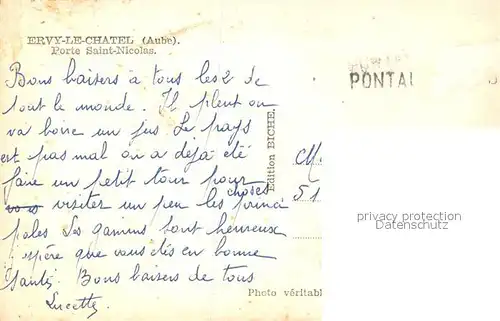 ERVY-LE-CHATEL (Aube).
Porte Saint-Nicolas.
Bons baisers à tous les 2 de
tout le monde. Il pleut on
va boire un jus Le pays
est pas mal on a déjà été
faire un petit tour pour
choses
visiter un peu les princi
pales Les gamins sont heureux
espère que vous êtes en bonne
santé. Bons baisers de tous
Lucette
Edition BICHE.
Photo véritabl
PONTAI
M
51
privacy protection
Datenschutz